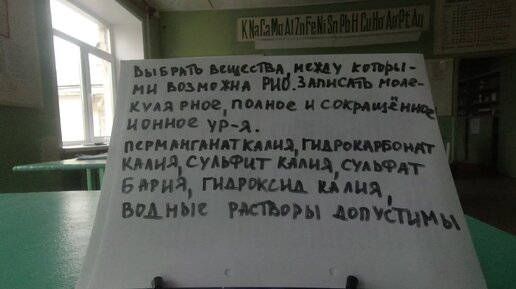 K Na Ca Mg Al Zn Fe Ni Sn Pb H Cu Hg Ag Pt Au
ВЫБРАТЬ ВЕЩЕСТВА, МЕЖДУ КОТОРЫ-
МИ ВОЗМОЖНА РИО. ЗАПИСАТЬ МОЛЕ-
КУЛЯРНОЕ, ПОЛНОЕ И СОКРАЩЁННОЕ
ИОННОЕ УР-Я.
ПЕРМАНГАНАТ КАЛИЯ, ГИДРОКАРБОНАТ
КАЛИЯ, СУЛЬФИТ КАЛИЯ, СУЛЬФАТ
БАРИЯ, ГИДРОКСИД КАЛИЯ,
ВОДНЫЕ РАСТВОРЫ ДОПУСТИМЫ